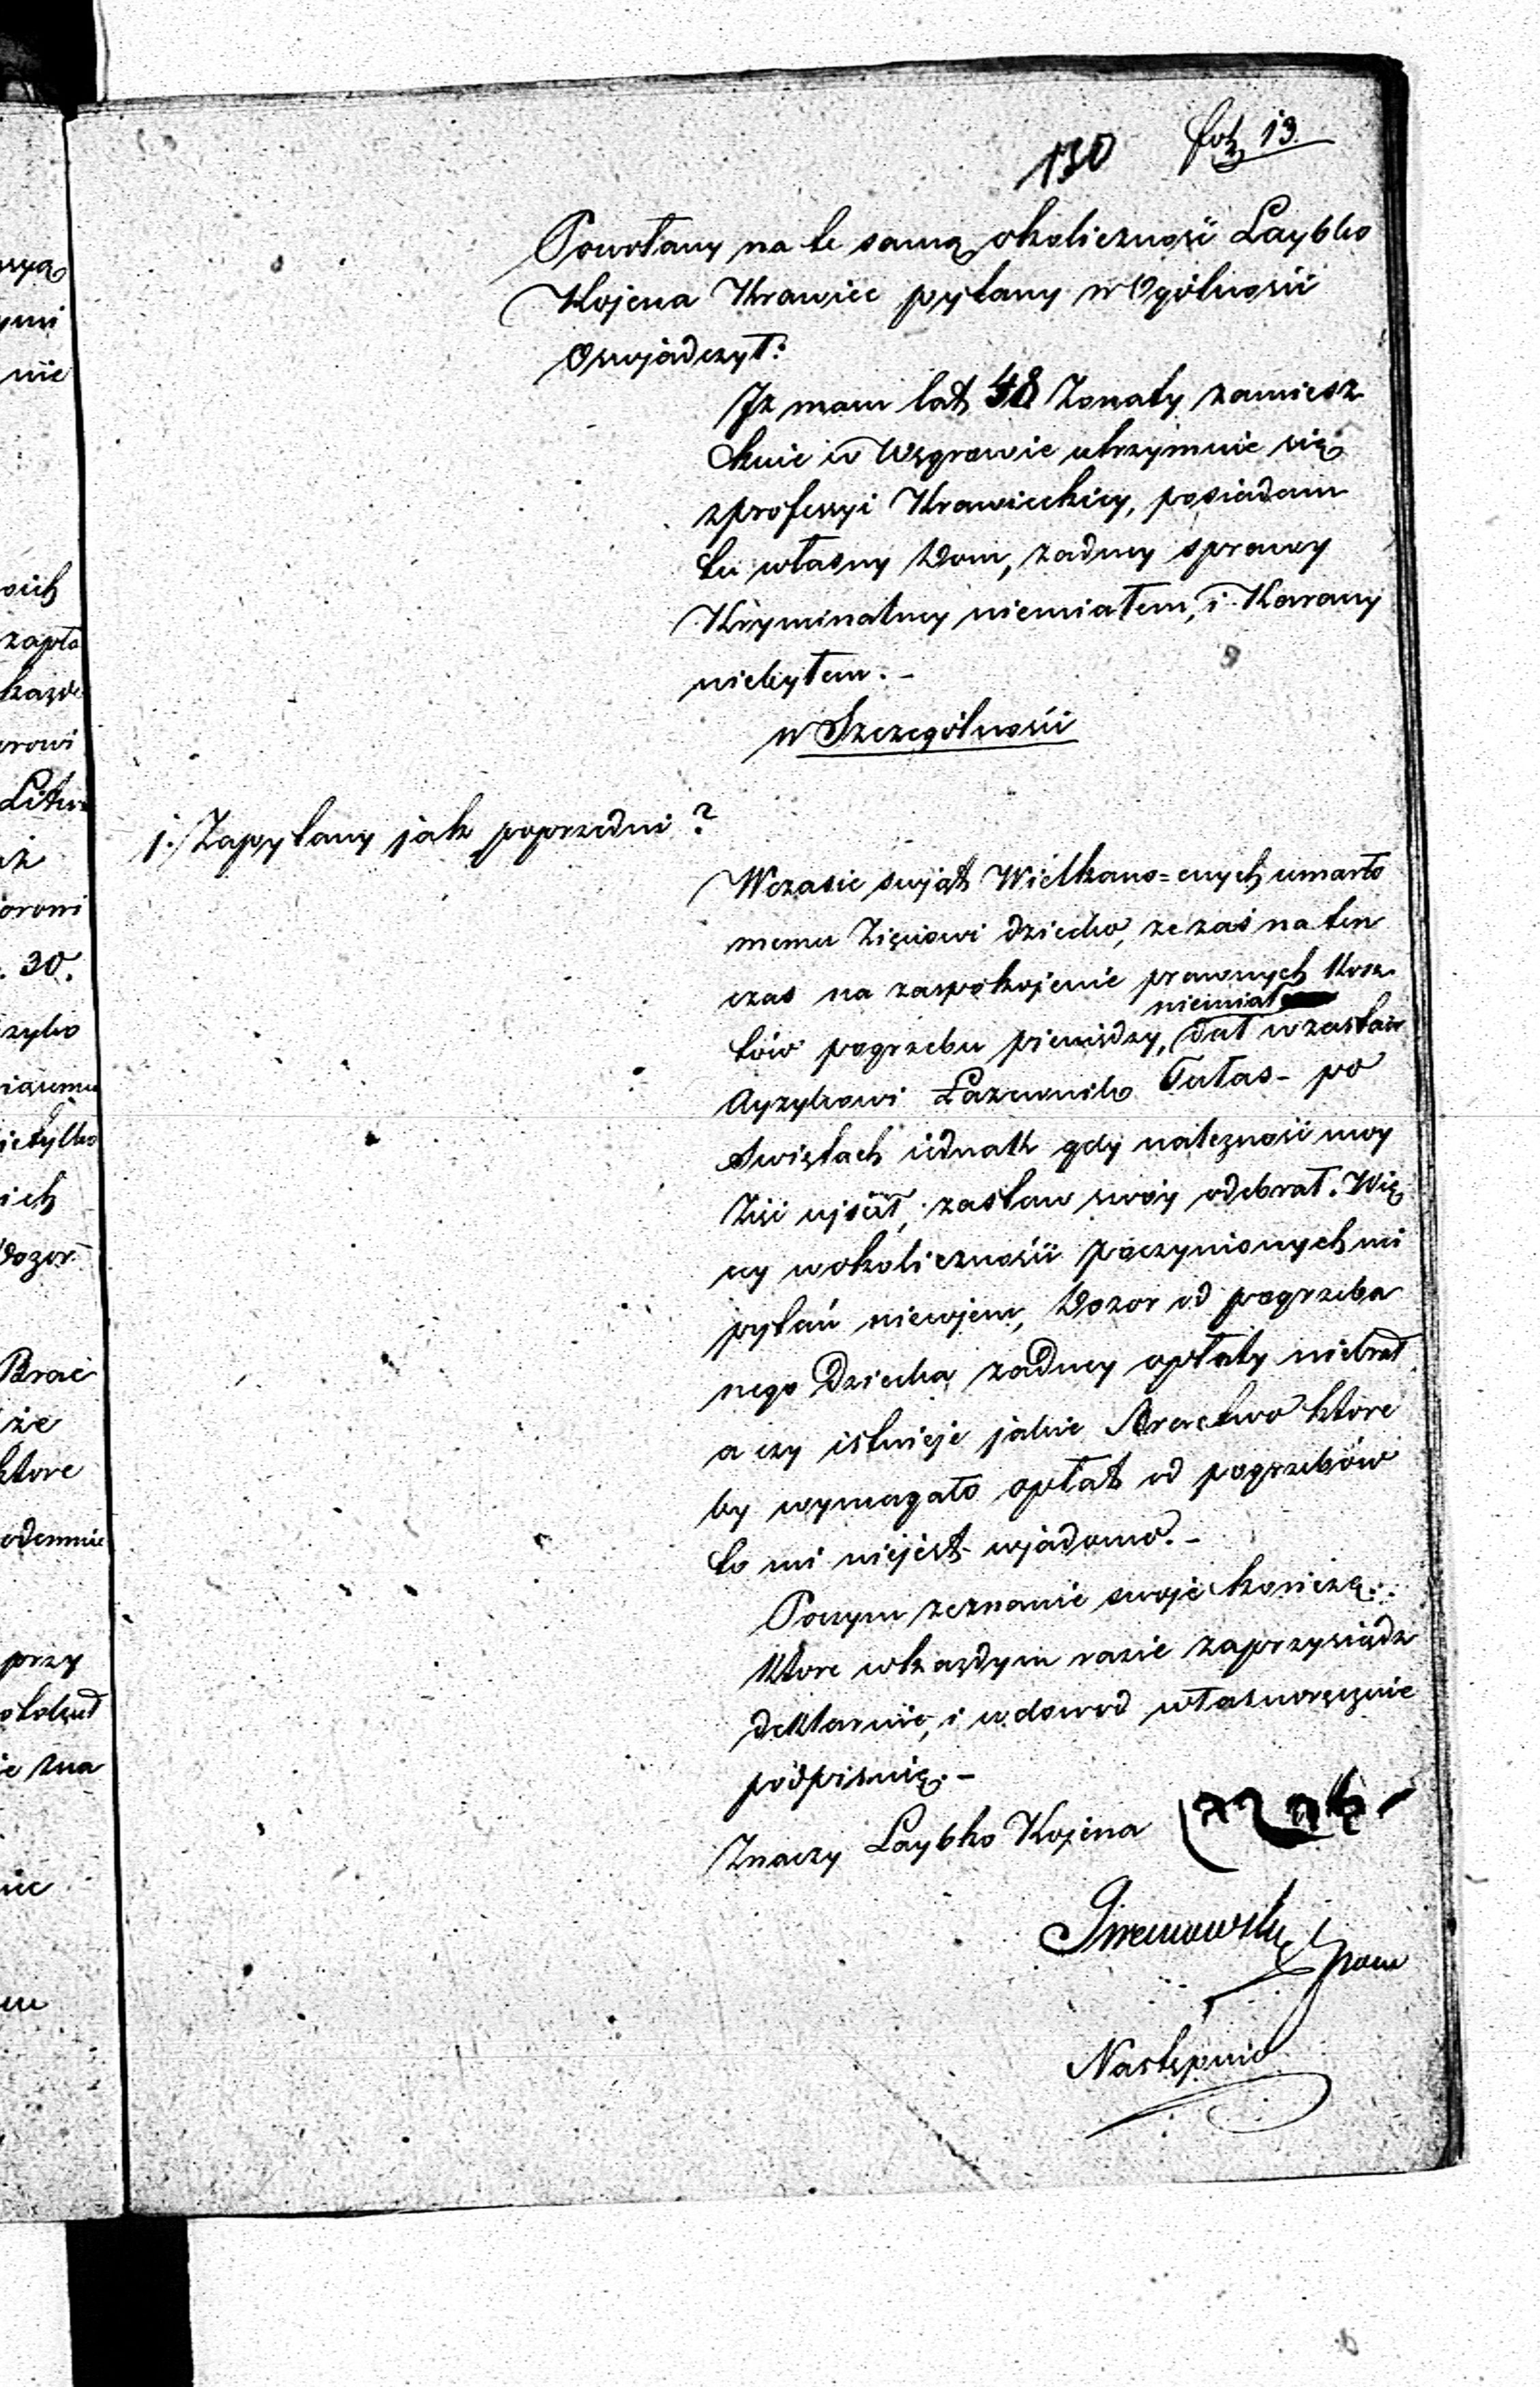 130 fol 13.
Powołany na te samą okoliczność Laybko
Kojena Krawiec pytany w Ogólności
Oswjadczył:
Jz mam lat 48 Zonaty zamiesz
kuie w Węgrowie utrzymuie się
zprofessyi Krawieckiey, posiadam
tu własny Dom, zadney sprawy
Kryminalney niemiałem, i Karany
niebyłem. -
w Szczególności
1. Zapytany jak poprzedni?
Wczasie swjąt Wielkano=cnych umarło
memu Zięciowi dziecko, ze zaś na ten
czas na zaspokojenie prawnych Kosz
niemiał
tów pogrzebu pieniędzy, dał w zastaw
Ayzykowi Tałas - po
Swiętach iednak gdy należność moy
Zięć ujścił, zastaw swóy odebrał. Wię
cy wokoliczności poczynionych mi
pytań niewjem, Dozor od pogrzeba
nego Dziecka zadney opłaty niebrał
a czy istnieje jakie Bractwo ktore
by wymagało opłat od pogrzebów
to mi niejest wjadomo. -
Poczym zeznanie swoje kończę.
Ktore wkażdym razie zaprzysiądz
deklaruie, i wdowod własnoręcznie
podpisuię. -
Znaczy Laybko Kojena
Następnie